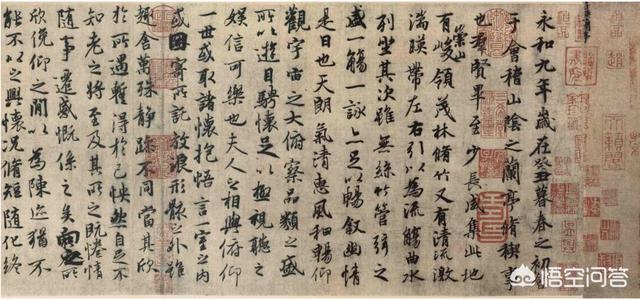 永和九年歲在癸丑暮春之初
于會稽山陰之蘭亭脩稧事
也群賢畢至少長咸集此地
有崇山峻領茂林脩竹又有清流激
湍暎帶左右引以為流觴曲水
列坐其次雖無絲竹管弦之
盛一觴一詠亦足以暢敘幽情
是日也天朗氣清惠風和暢仰
觀宇宙之大俯察品類之盛
所以遊目騁懷足以極視聽之
娛信可樂也夫人之相與俯仰
一世或取諸懷抱悟言一室之內
或因寄所託放浪形骸之外雖
趣舍萬殊靜躁不同當其欣
於所遇蹔得於己怏然自足不
知老之將至及其所之既惓情
隨事遷感慨係之矣向之所
欣俛仰之間以為陳迹猶不
能不以之興懷況脩短隨化終
悟空问答